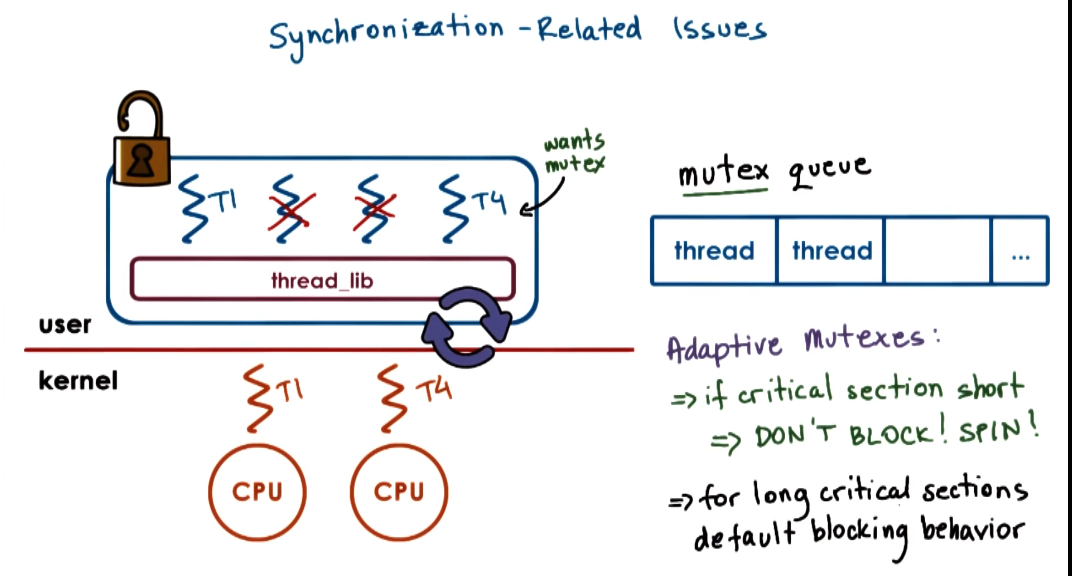 Synchronization - Related Issues
wants
mutex
T1
T4
thread_lib
user
kernel
T1
T4
CPU
CPU
mutex queue
thread
thread
...
Adaptive Mutexes:
=> if critical section short
=> DON'T BLOCK! SPIN!
=> for long critical sections
default blocking behavior